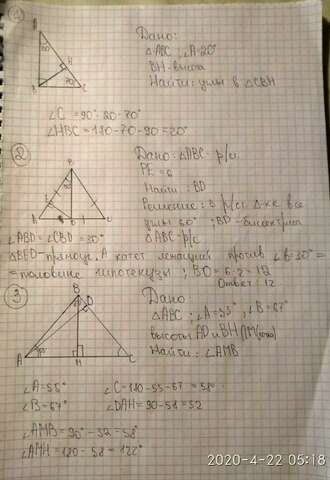 1
Дано:
△ABC; ∠A=20°
BH-высота
Найти: углы в △CBH
A
20
H
70
B
C
∠C = 90°-20=70°
∠HBC = 180-70-90=20°
2
Дано: △ABC - р/с
= 6
Найти: BD
Решение: В р/с Δ-ке все
углы 60°; BD-биссектриса
△ABC-р/с
B
A
D
C
∠ABD=∠CBD=30°
катет лежащий против ∠B=30°=
=половине гипотенузы; BD=6·2=12
Ответ: 12
3
Дано:
△ABC; ∠A=55°; ∠B=67°
высоты AD и BH
Найти: ∠AMB
B
D
A
H
C
∠A=55°
∠C=180-55-67=58°
∠B=67°
∠DAH=90-58=32
∠AMH=90°-32=58°
=180-58=122°
2020-4-22 05:18